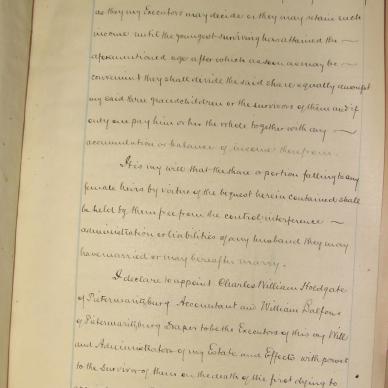 as they my Executors may decide or they may retain such
income until the youngest surviving has attained the
aforementioned age after which as soon as may be
convenient they shall divide the said share equally amongst
my said three grandchildren or the survivors of them and if
only one pay him or her the whole together with any
accumulation or balance of income therefrom.
It is my will that the share or portion falling to any
female heirs by virtue of the bequest herein contained shall
be held by them free from the control interference
administration or liabilities of any husband they may
have married or may hereafter marry.
I declare to appoint Charles William Holdgate
of Pietermaritzburg Accountant and William Balfour
of Pietermaritzburg Draper to be the Executors of this my Will
and Administrators of my Estate and Effects with power
to the Survivor of them on the death of the first dying to